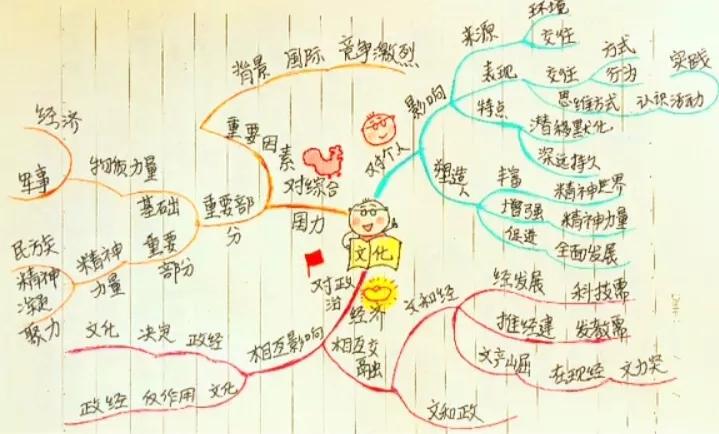 文化
影响
对个人
来源
环境
交往
表现
交往
方式
行为
思维方式
实践
认识活动
特点
潜移默化
深远持久
塑造人
丰富
精神世界
增强
精神力量
促进
全面发展
对综合
国力
重要因素
背景
国际
竞争激烈
重要部
分
基础
物质力量
经济
军事
重要
部分
精神
力量
民族
精神
凝聚力
对政治
经济
相互影响
文化
决定
政经
政经
反作用
文化
相互交融
文和经
经发展
科技需
推经建
发教需
文产崛
在现经
文力突
文和政